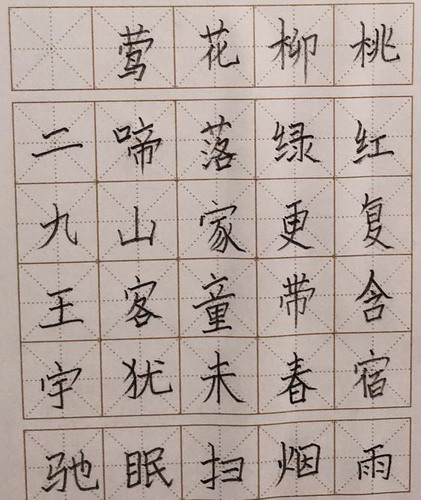 桃红复含宿雨
柳绿更带春烟
花落家童未扫
莺啼山客犹眠
二九王宇驰